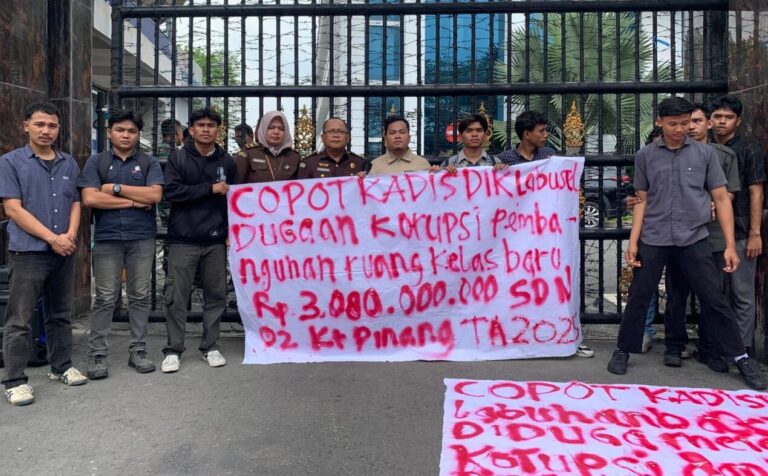 COPOT KADIS DIK Labusel
DUGaan Korupsi Pemba-
ngunan ruang kelas baru
Rp. 3.080.000.000 SDN
02 Kt Pinang TA 2025
COPOT KADIS
Labuhanba
DIDUGA me
Korupsi